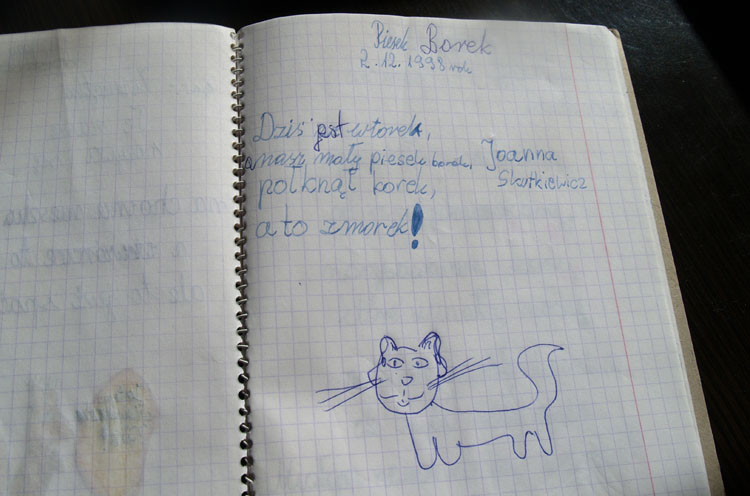 Piesek Borek
2.12.1998 rok
Dziś jest wtorek,
a nasz mały piesek borek,
połknął korek,
a to zmorek!
Joanna
Skutkiewicz